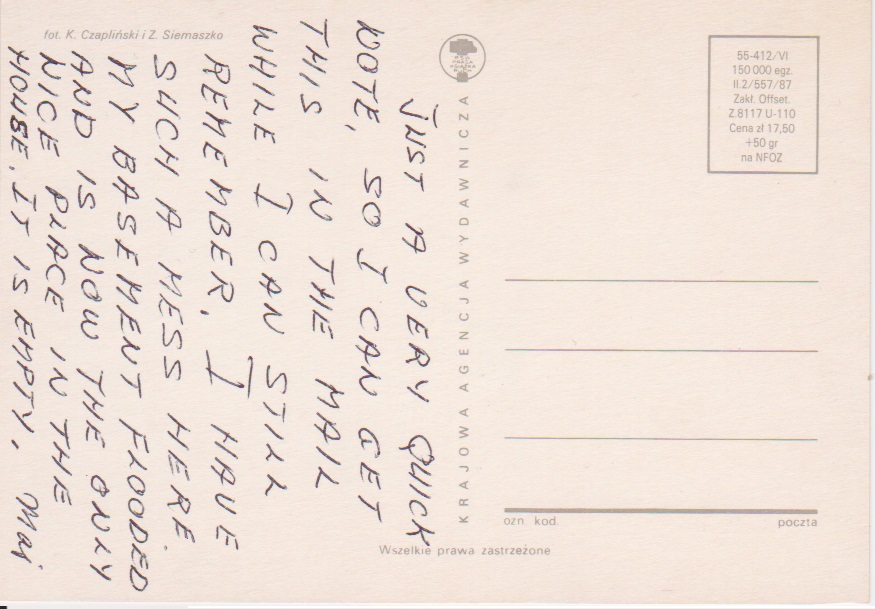 fot. K. Czapliński i Z. Siemaszko
JUST A VERY QUICK
NOTE, SO I CAN GET
THIS IN THE MAIL
WHILE I CAN STILL
REMEMBER. I HAVE
SUCH A MESS HERE.
MY BASEMENT FLOODED
AND IS NOW THE ONLY
NICE PLACE IN THE
HOUSE. IT IS EMPTY.
KRAJOWA AGENCJA WYDAWNICZA
55-412/VI
150 000 egz.
II.2/557/87
Zakł. Offset.
Z.8117 U-110
Cena zł 17,50
+50 gr
na NFOZ
ozn. kod.
poczta
Wszelkie prawa zastrzeżone